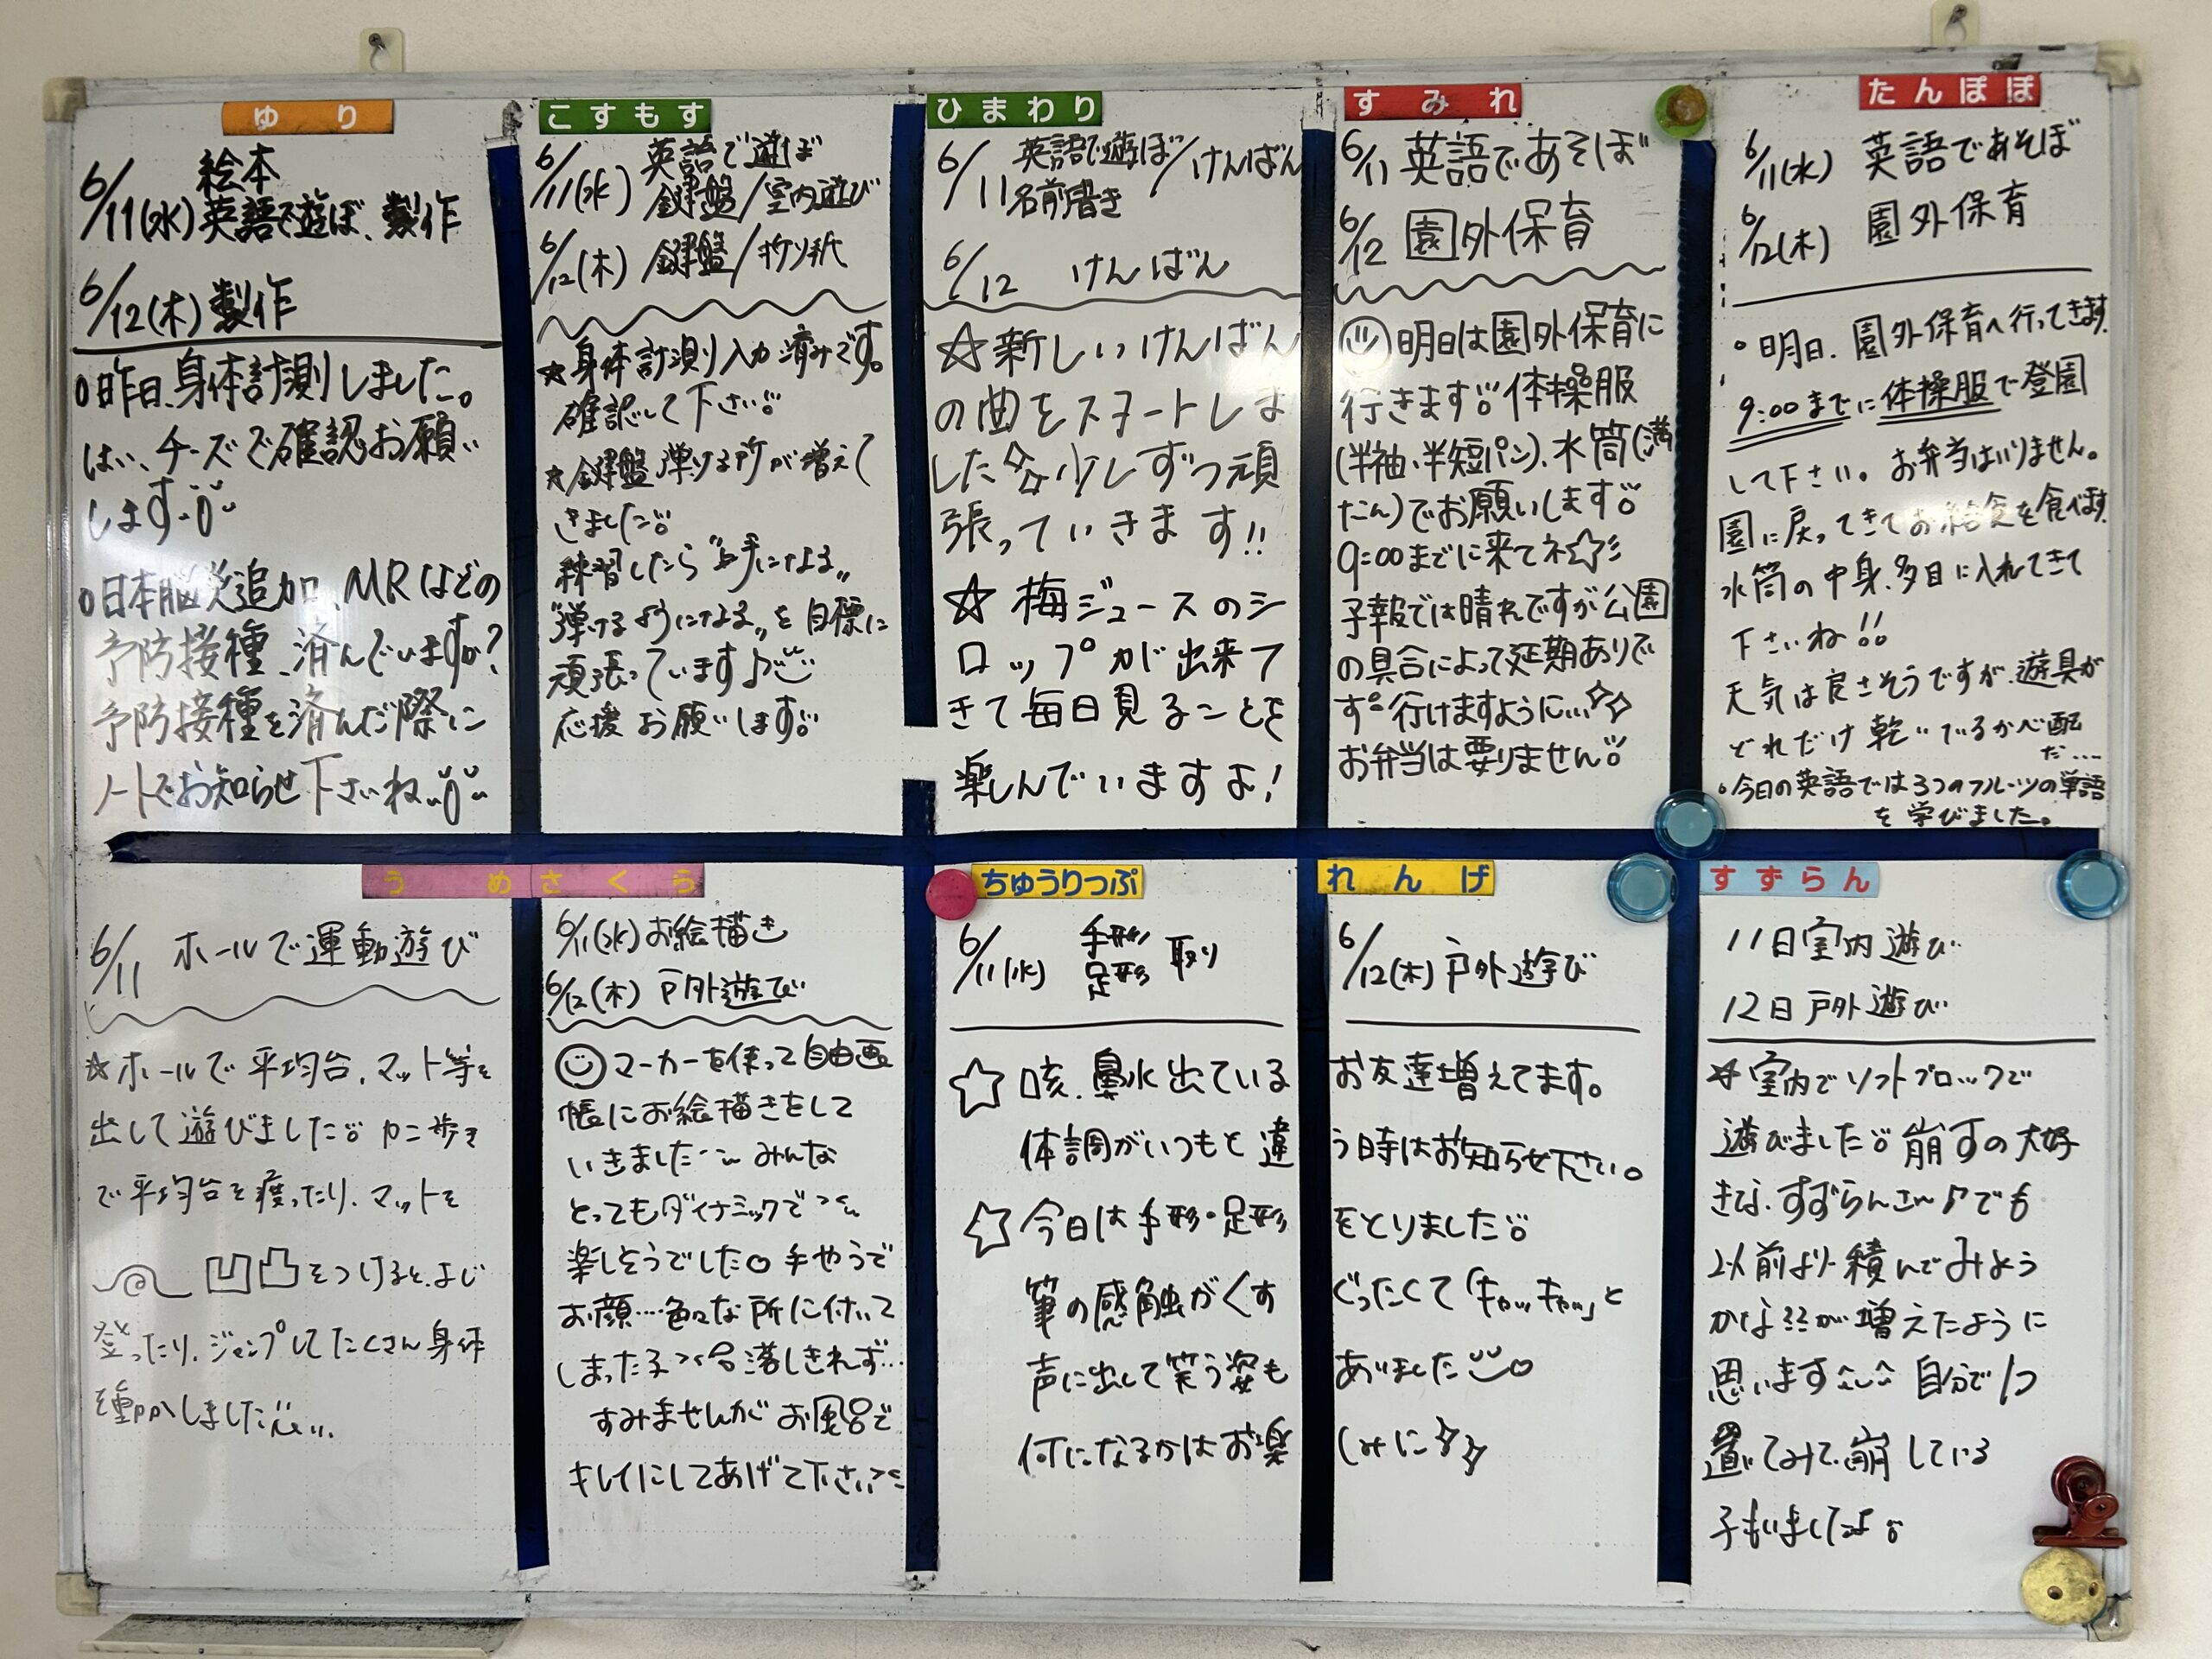 ゆり
絵本
6/11(水)英語で遊ぼ、製作
6/12(木)製作
○昨日、身体計測しました。
はい、チーズで確認お願い
します
○日本脳炎追加、MRなどの
予防接種、済んでいますか?
予防接種を済んだ際に
ノートでお知らせ下さいね
こすもす
6/11(水) 英語で遊ぼ
鍵盤/室内遊び
6/12(木) 鍵盤/折り紙
★身体計測入力済みです。
確認して下さい
★鍵盤弾ける所が増えて
きました
練習したら“上手になる„
“弾けるようになる„を目標に
頑張っています♪
応援お願いします
ひまわり
6/11 英語で遊ぼ/けんばん
名前書き
6/12 けんばん
☆新しいけんばん
の曲をスタートしま
した☆少しずつ頑
張っていきます!!
☆梅ジュースのシ
ロップが出来て
きて毎日見ることを
楽しんでいますよ!
すみれ
6/11 英語であそぼ
6/12 園外保育
明日は園外保育に
行きます 体操服
(半袖、半短パン)、水筒(満
たん)でお願いします
9:00までに来てネ☆
予報では晴れですが公園
の具合によって延期ありで
す 行けますように…
お弁当は要りません
たんぽぽ
6/11(水) 英語であそぼ
6/12(木) 園外保育
○明日、園外保育へ行ってきます。
9:00までに体操服で登園
して下さい。お弁当はいりません。
園に戻ってきてお給食を食べます。
水筒の中身、多目に入れてきて
下さいね!!
天気は良さそうですが、遊具が
どれだけ乾いでるか心配
だ....
○今日の英語では3つのフルーツの単語
を学びました。
うめさくら
6/11 ホールで運動遊び
☆ホールで平均台、マット等を
出して遊びました カニ歩き
で平均台を渡ったり、マットを
凹凸をつけると、よじ
登ったり、ジャンプしてたくさん身体
を動かしました
6/11(水)お絵描き
6/12(木) 戸外遊び
マーカーを使って自由画
帳にお絵描きをして
いきました みんな
とってもダイナミックで
楽しそうでした 手やうで
お顔…色々な所に付いて
しまった子 落しきれず…
すみませんがお風呂で
キレイにしてあげて下さい
ちゅうりっぷ
れんげ
6/11(水) 手形 足形 取り
6/12(木) 戸外遊び
☆咳、鼻水出ている お友達増えてます。
体調がいつもと違 う時はお知らせ下さい。
☆今日は手形・足形 をとりました
筆の感触がくす ぐったくて「キャッキャッ」と
声に出して笑う姿も ありました
何になるかはお楽 しみに
すずらん
11日室内遊び
12日戸外遊び
☆室内でソフトブロックで
遊びました 崩すの大好
きな、すずらんさん♪でも
以前より積んでみよう
かな が増えたように
思います 自分で1つ
置いてみて、崩している
子もいましたよ